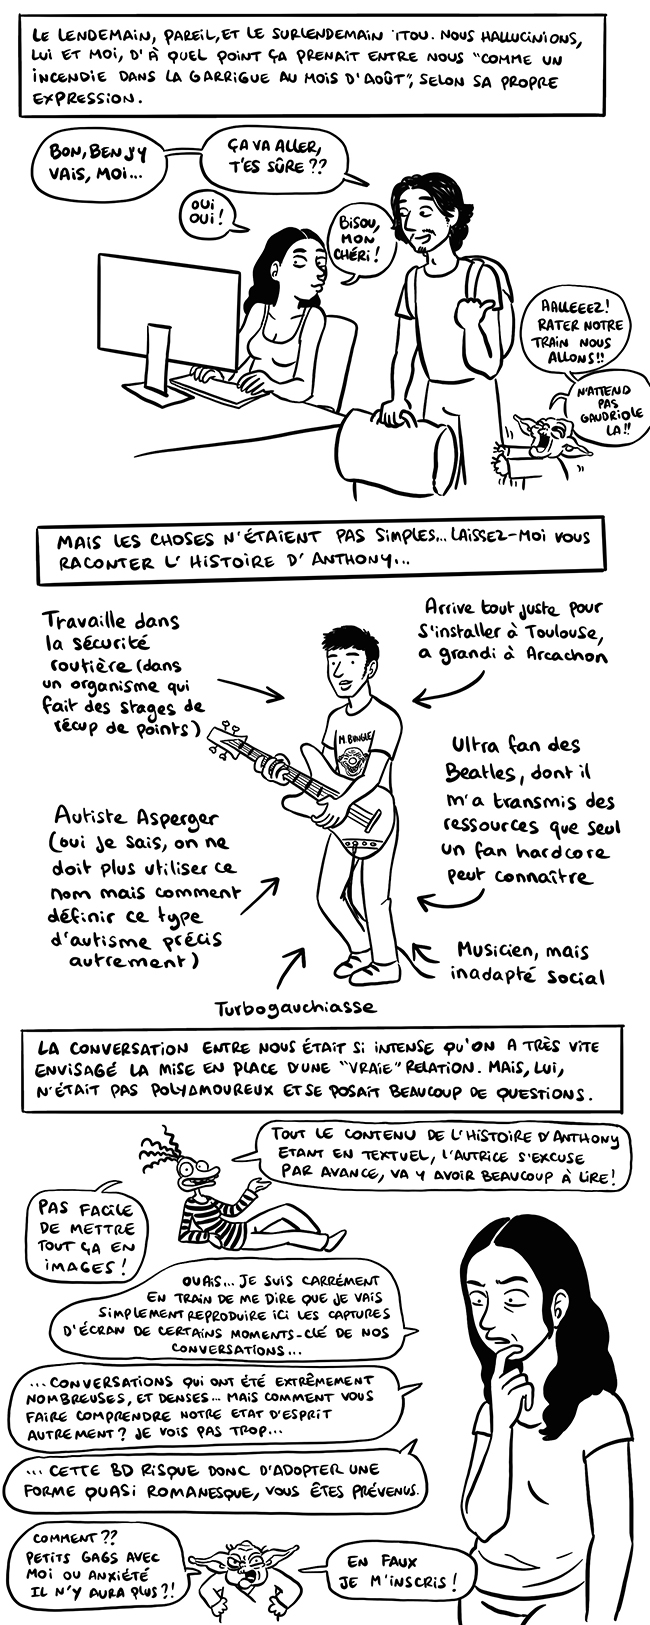 LE LENDEMAIN, PAREIL, ET LE SURLENDEMAIN ITOU. NOUS HALLUCINIONS,
LUI ET MOI, D'À QUEL POINT ÇA PRENAIT ENTRE NOUS "COMME UN
INCENDIE DANS LA GARRIGUE AU MOIS D'AOÛT", SELON SA PROPRE
EXPRESSION.
BON, BEN J'Y
VAIS, MOI...
ÇA VA ALLER,
T'ES SÛRE ??
OUI
OUI !
BISOU,
MON
CHÉRI !
AALLEEEZ !
RATER NOTRE
TRAIN NOUS
ALLONS !!
N'ATTEND
PAS
GAUDRIOLE
LA !!
MAIS LES CHOSES N'ÉTAIENT PAS SIMPLES... LAISSEZ-MOI VOUS
RACONTER L'HISTOIRE D'ANTHONY...
Travaille dans
la sécurité
routière (dans
un organisme qui
fait des stages de
récup de points)
Arrive tout juste pour
s'installer à Toulouse,
a grandi à Arcachon
M. BUNGLE
Ultra fan des
Beatles, dont il
m'a transmis des
ressources que seul
un fan hardcore
peut connaître
Autiste Asperger
(oui je sais, on ne
doit plus utiliser ce
nom mais comment
définir ce type
d'autisme précis
autrement)
Musicien, mais
inadapté social
Turbogauchiasse
LA CONVERSATION ENTRE NOUS ÉTAIT SI INTENSE QU'ON A TRÈS VITE
ENVISAGÉ LA MISE EN PLACE D'UNE "VRAIE" RELATION. MAIS, LUI,
N'ÉTAIT PAS POLYAMOUREUX ET SE POSAIT BEAUCOUP DE QUESTIONS.
TOUT LE CONTENU DE L'HISTOIRE D'ANTHONY
ETANT EN TEXTUEL, L'AUTRICE S'EXCUSE
PAR AVANCE, VA Y AVOIR BEAUCOUP À LIRE !
PAS FACILE
DE METTRE
TOUT ÇA EN
IMAGES !
OUAIS... JE SUIS CARRÉMENT
EN TRAIN DE ME DIRE QUE JE VAIS
SIMPLEMENT REPRODUIRE ICI LES CAPTURES
D'ÉCRAN DE CERTAINS MOMENTS-CLÉ DE NOS
CONVERSATIONS...
... CONVERSATIONS QUI ONT ÉTÉ EXTRÊMEMENT
NOMBREUSES, ET DENSES... MAIS COMMENT VOUS
FAIRE COMPRENDRE NOTRE ETAT D'ESPRIT
AUTREMENT ? JE VOIS PAS TROP...
... CETTE BD RISQUE DONC D'ADOPTER UNE
FORME QUASI ROMANESQUE, VOUS ÊTES PRÉVENUS.
COMMENT ??
PETITS GAGS AVEC
MOI OU ANXIÉTÉ
IL N'Y AURA PLUS ?!
EN FAUX
JE M'INSCRIS !